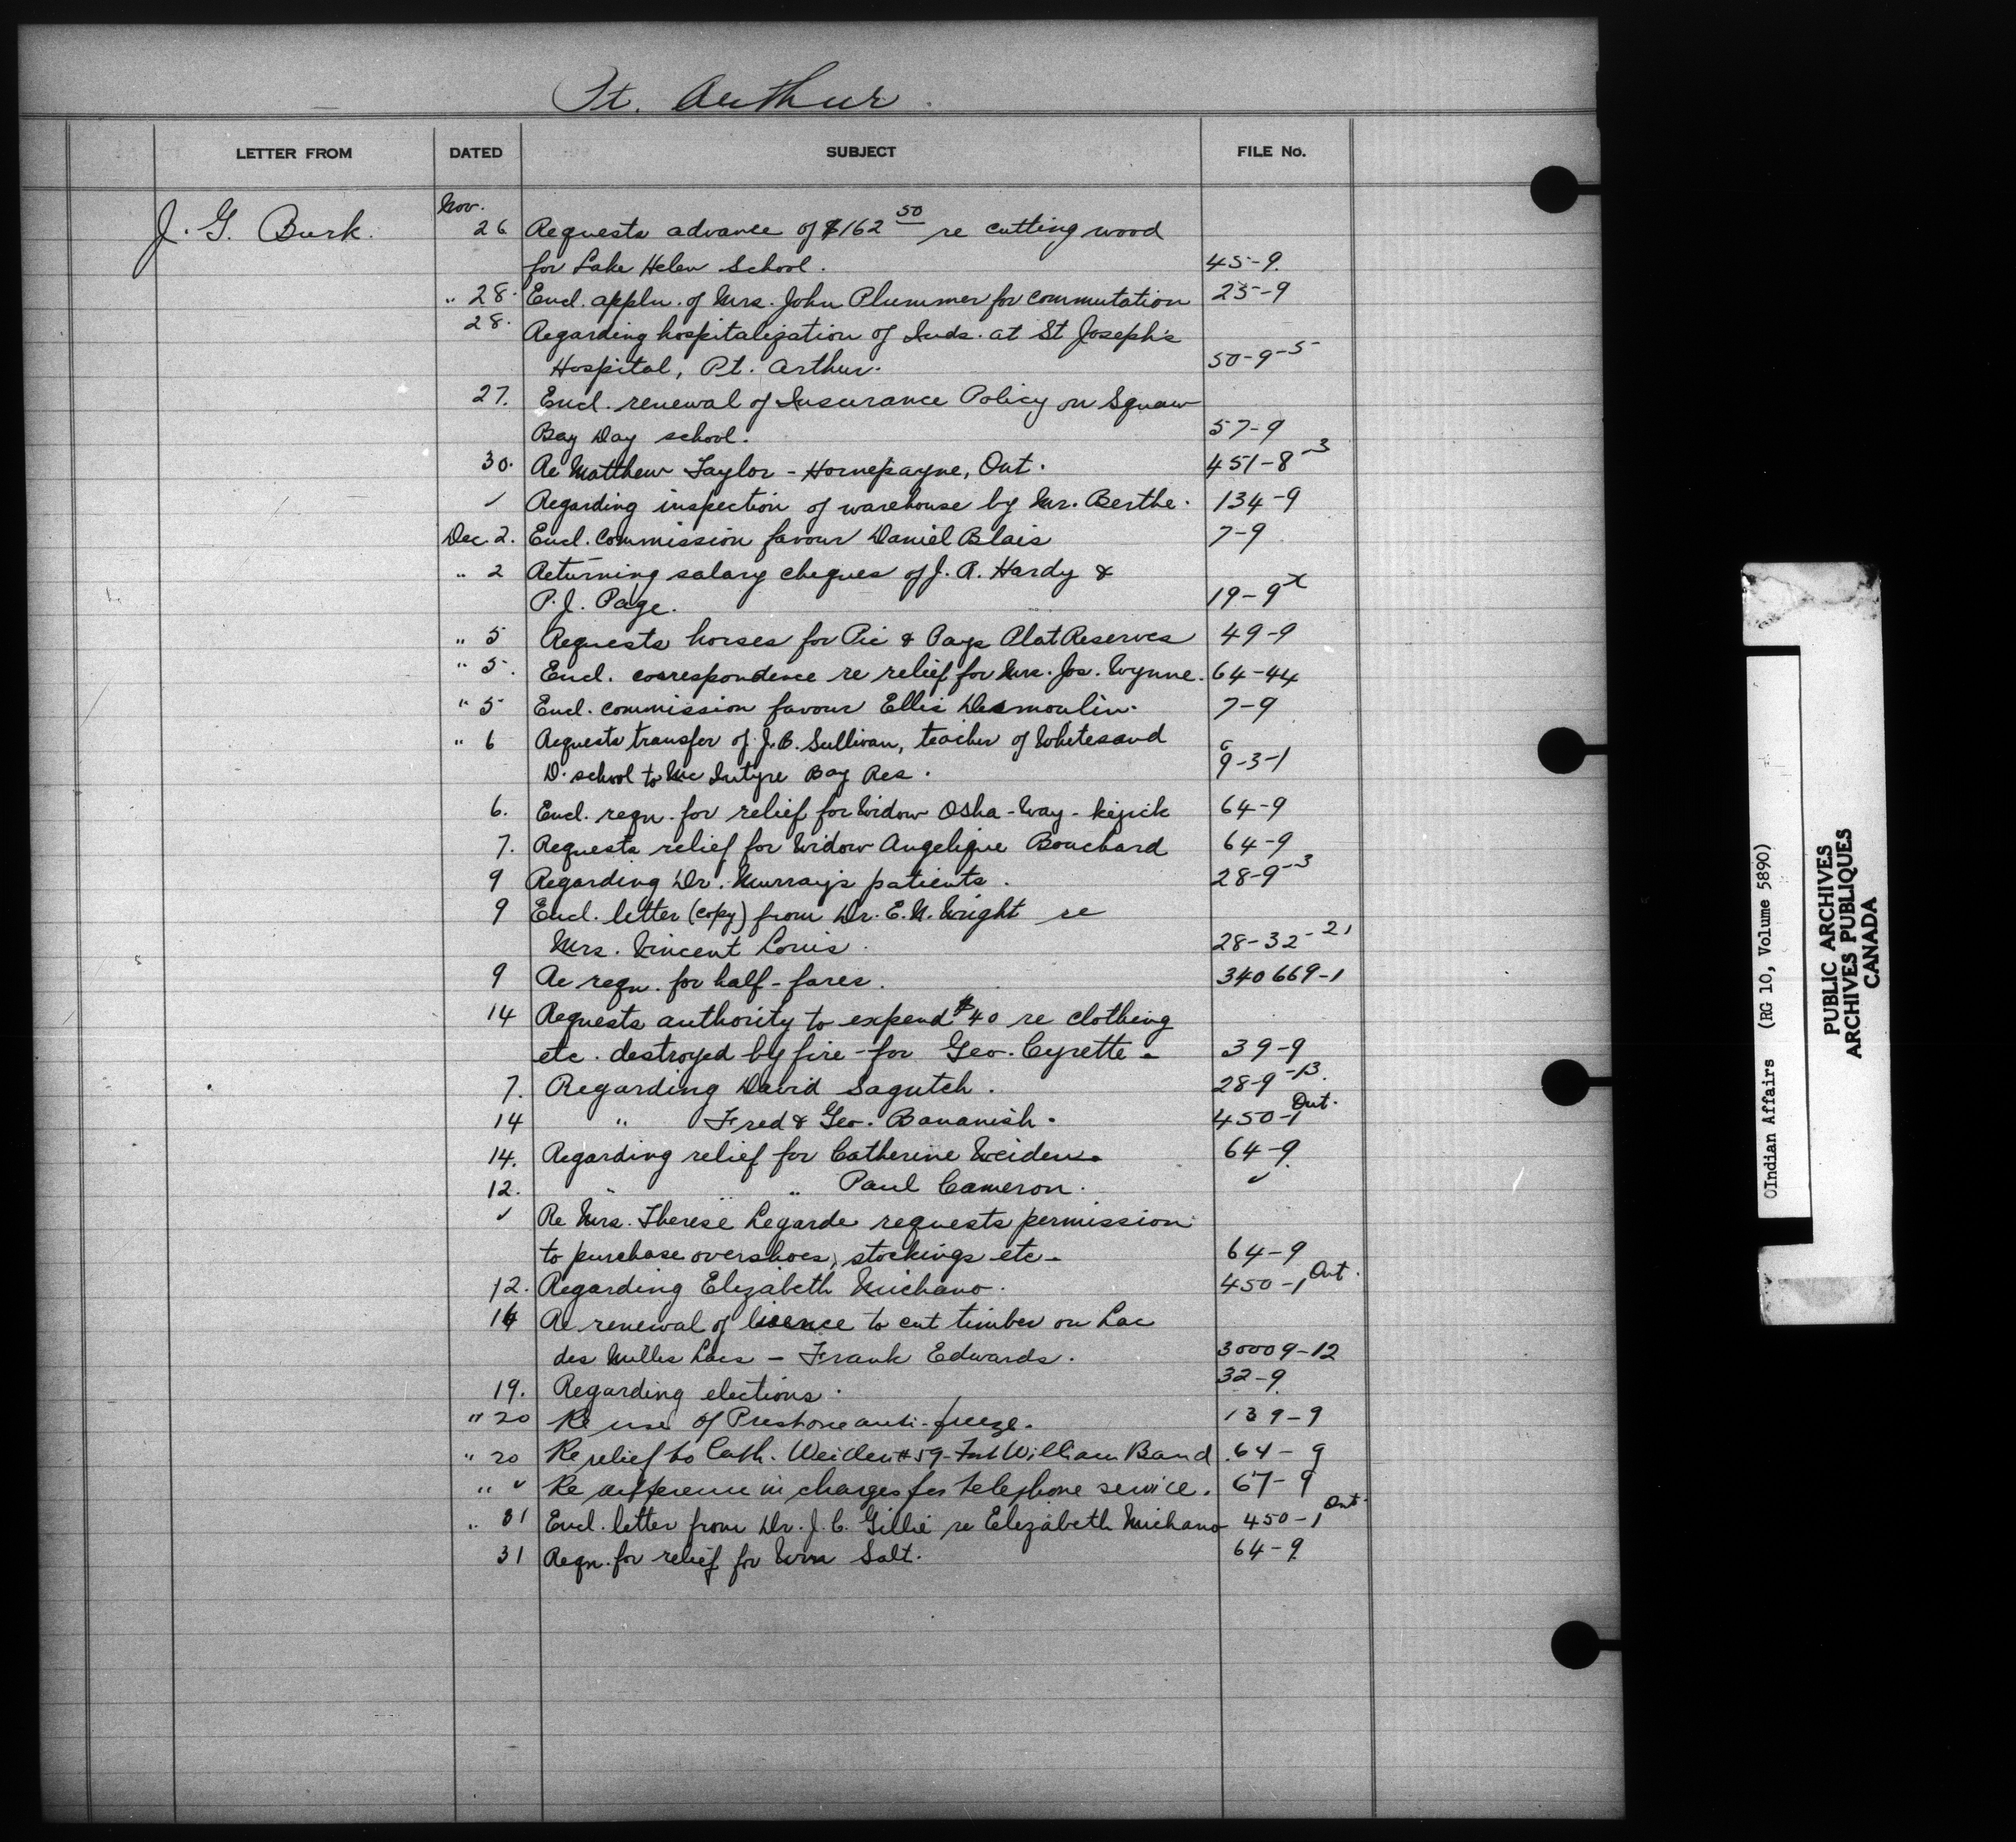 Pt. Arthur.
LETTER FROM DATED SUBJECT FILE No.
Nov.
J. G. Burk. 26 Requests advance of $162 50 re cutting wood
for Lake Helen School. 45-9.
" 28. Encl. appln. of Mrs. John Plummer for commutation 25-9
28. Regarding hospitalization of Inds. at St Joseph's
Hospital, Pt. Arthur. 50-9-5
27. Encl. renewal of Insurance Policy on Squaw
Bay Day school. 57-9
30. Re Matthew Taylor - Hornepayne, Ont. 451-8-3
✓ Regarding inspection of warehouse by Mr. Berthe. 134-9
Dec. 2. Encl. Commission favour Daniel Blais 7-9
" 2 Returning salary cheques of J. R. Hardy &
P. J. Page. 19-9x
" 5 Requests horses for Pic & Pays Plat Reserves 49-9
" 5. Encl. correspondence re relief for Mrs. Jos. Wynne. 64-44
" 5 Encl. commission favour Ellis Desmoulin. 7-9
" 6 Requests transfer of J. B. Sullivan, teacher of Whitesand
D. school to McIntyre Bay Res. 9-3-1
6. Encl. reqn. for relief for Widow Osha-Way-kijick 64-9
7. Requests relief for Widow Angelique Bouchard 64-9
9 Regarding Dr. Murray's patients. 28-9-3
9 Encl. letter (copy) from Dr. E. N. Wright re
Mrs. Vincent Louis. 28-32-21
9 Re reqn. for half-fares. 340669-1
14 Requests authority to expend $40 re clothing
etc. destroyed by fire - for Geo. Cyrette - 39-9
7. Regarding David Sagutch. 28-9-13.
14 " Fred & Geo. Bananish. 450-1 Ont.
14. Regarding relief for Catherine Weiden. 64-9
12. " " Paul Cameron. ✓
✓ Re Mrs. Therese Legarde requests permission
to purchase overshoes, stockings etc- 64-9
12. Regarding Elizabeth Michano. 450-1 Ont.
14 Re renewal of licence to cut timber on Lac
des Milles Lacs - Frank Edwards. 30009-12
19. Regarding elections. 32-9
" 20 Re use of Prestone anti-freeze. 139-9
" 20 Re relief to Cath. Weiden #59-Fort William Band. 64-9
" ✓ Re difference in charges for telephone service. 67-9
" 31 Encl. letter from Dr. J. C. Gillie re Elizabeth Michano 450-1 Ont.
31 Reqn. for relief for Wm Salt. 64-9
Indian Affairs (RG 10, Volume 5890)
PUBLIC ARCHIVES
ARCHIVES PUBLIQUES
CANADA